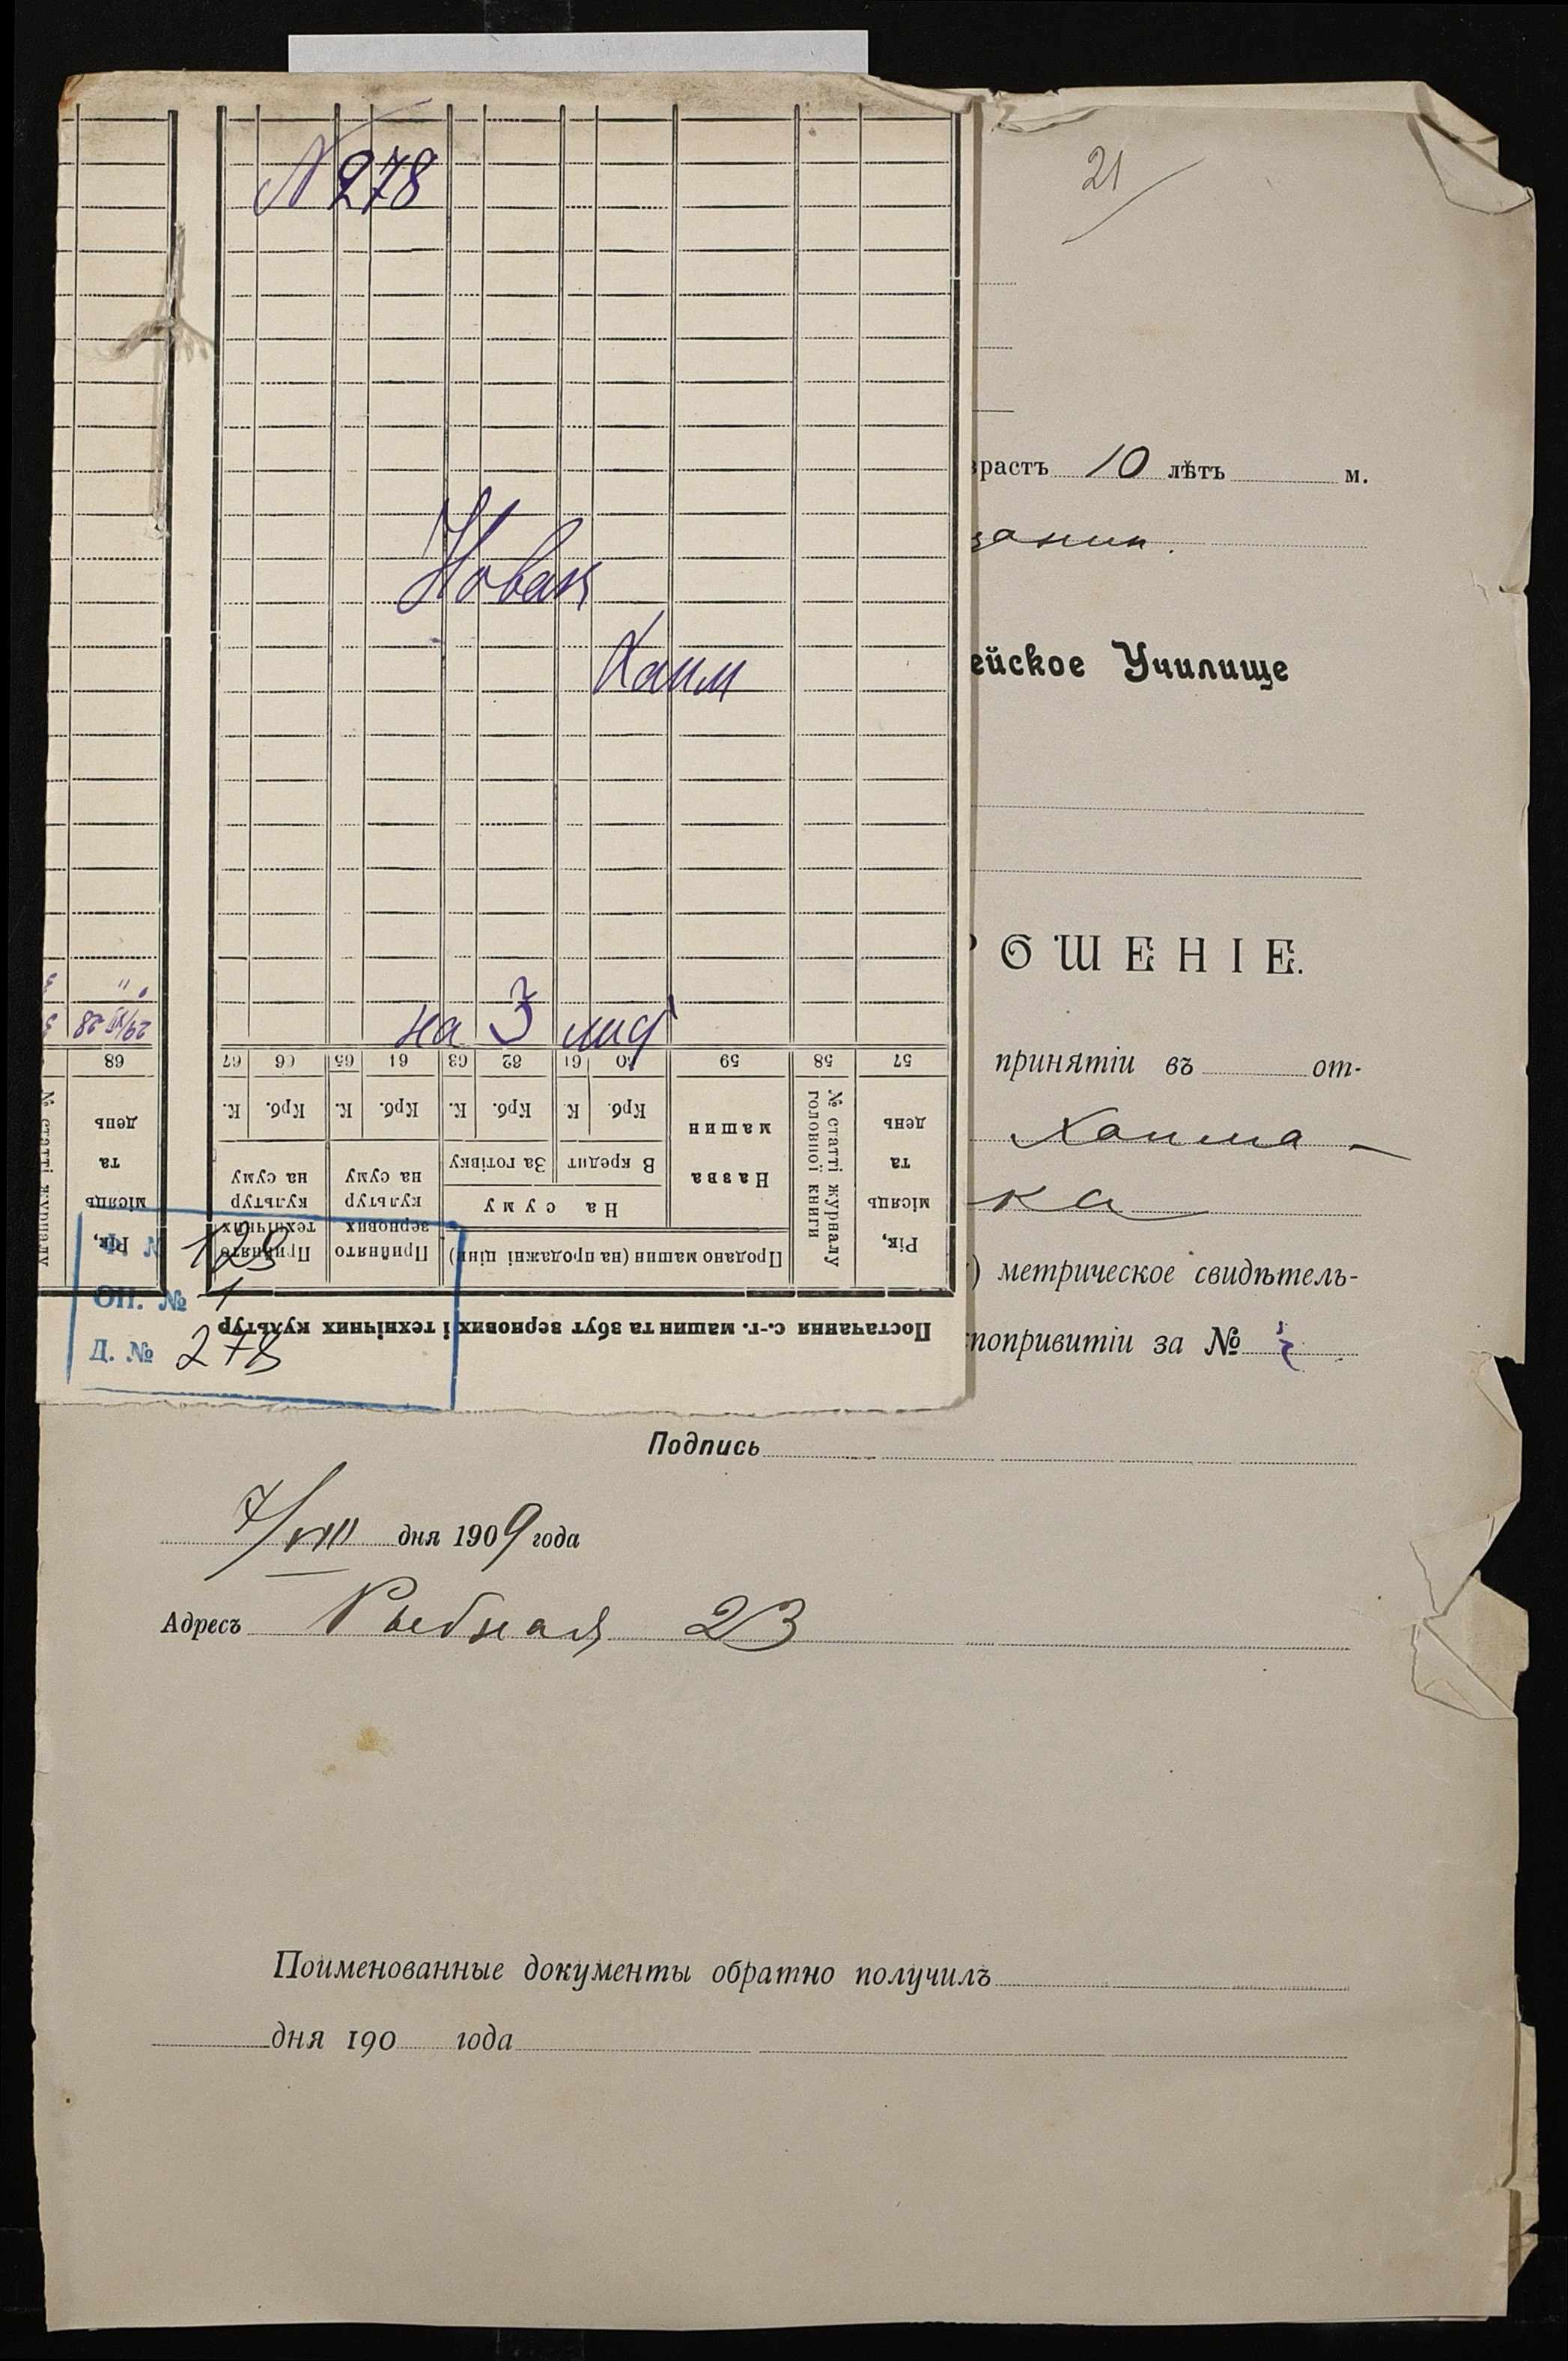 N 278
Новак
Хаим
на 3 лис
29/VII 28
68 67 66 65 64 63 62 61 60 59 58 57
К. Крб. К. Крб. К. Крб. К Крб.
Рік, місяць та день
№ статті журналу
Прийнято технічних культур на суму
Прийнято зернових культур на суму
Продано машин (на продажні ціни)
На суму
За готівку
В кредит
Назва машин
№ статті журналу головної книги
Рік, місяць та день
Постачання с.-г. машин та збут зернових і технічних культур
Ф. № 129
ОП. № 1
Д. № 278
21
зрастъ 10 лѣтъ м.
ейское Училище
ОШЕНІЕ.
принятіи въ от-
Хаима
ка
) метрическое свидѣтель-
попривитіи за №
Подпись
7/VIII дня 1909 года
Адресъ Рыбная 23
Поименованные документы обратно получилъ
дня 190 года